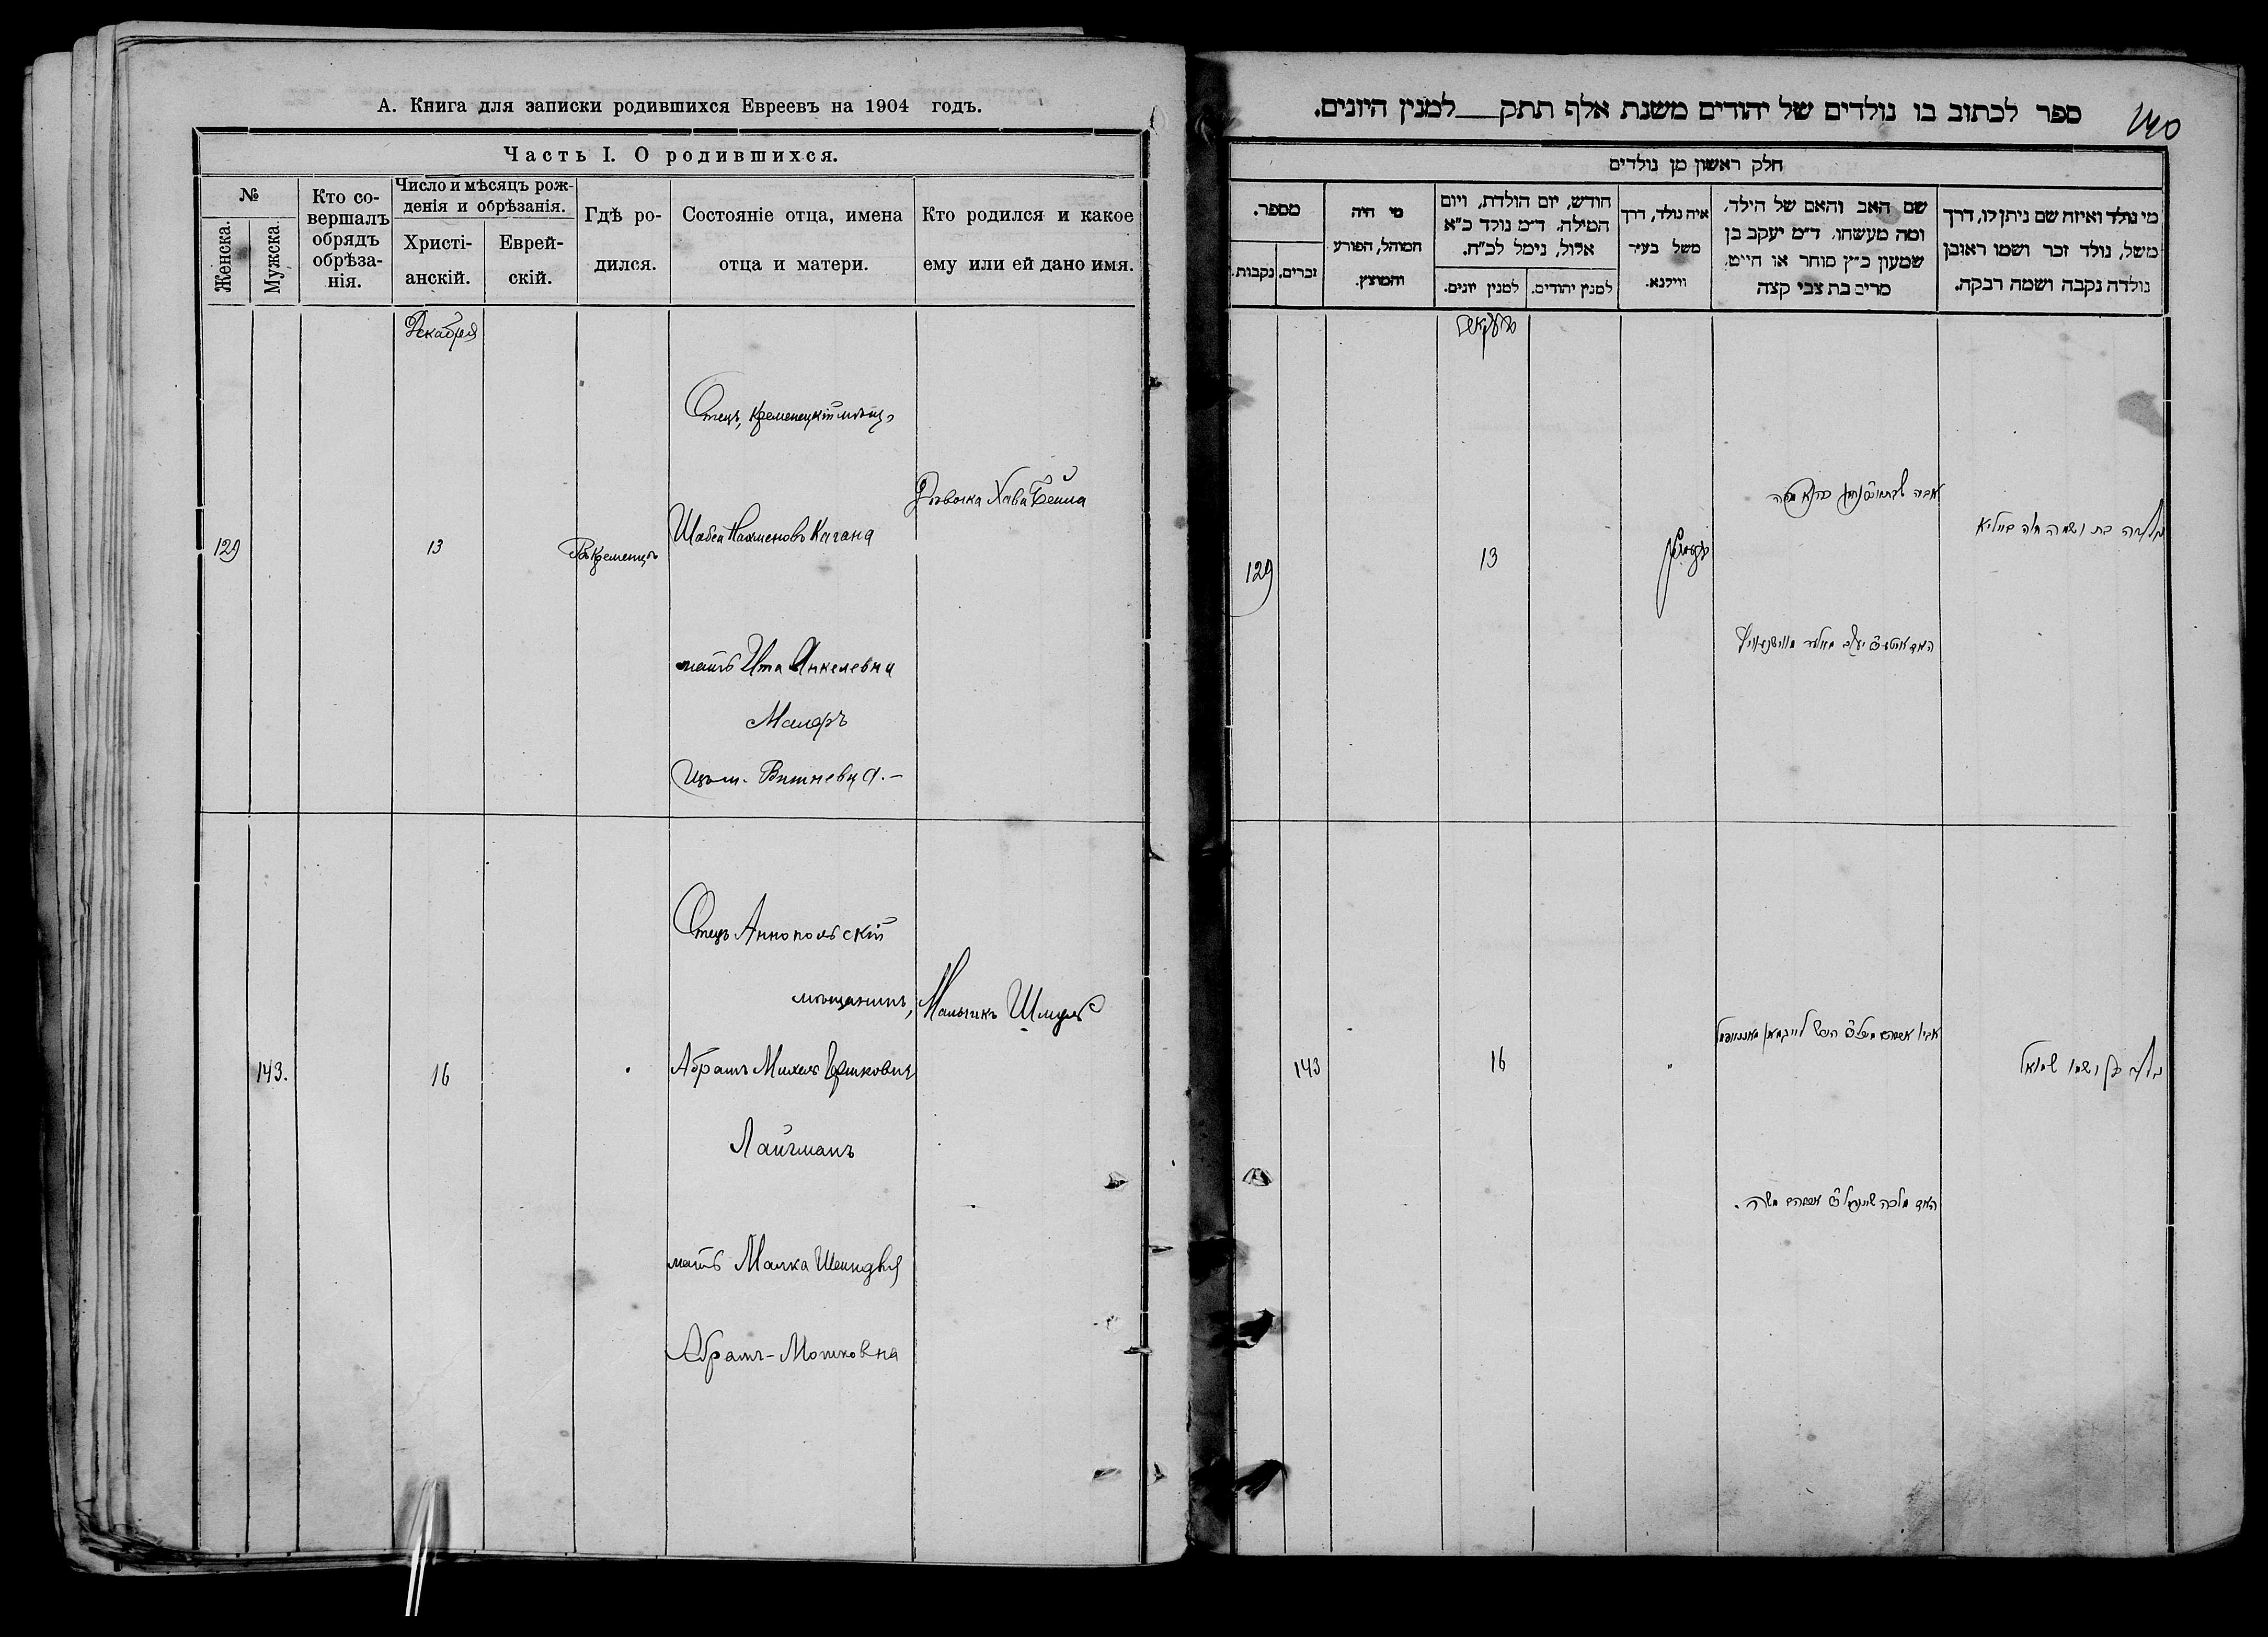 А. Книга для записки родившихся Евреевъ на 1904 годъ.
Часть I. О родившихся.
№
Женска.
Мужска.
Кто со-
вершалъ
обрядъ
обрѣза-
нія.
Число и мѣсяцъ рож-
денія и обрѣзанія.
Христі-
анскій.
Еврей-
скій.
Гдѣ ро-
дился.
Состояніе отца, имена
отца и матери.
Кто родился и какое
ему или ей дано имя.
Декабря
129
13
Кременцѣ
Отецъ, Кременецкій мѣщ.
Нахмановъ Кагана
мать Ита Янкелевна
Маляръ
Вишневца.—
Дѣвочка Хава Бейла
143.
16
Отецъ Аннопольскій
мѣщанинъ,
Абрамъ Михель Гершковичъ
Лайчманъ
мать Малка Шейндля
Абрамъ-Мошковна
Мальчикъ Шмуль
140
ספר לכתוב בו נולדים של יהודים משנת אלף תתק__למנין היונים.
חלק ראשון מן נולדים
מי נולד ואיזה שם ניתן לו, דרך
משל, נולד זכר ושמו ראובן
נולדה נקבה ושמה רבקה.
שם האב והאם של הילד,
ומה מעשהו. ד״מ יעקב בן
שמעון כ״ץ סוחר או חייט,
מרים בת צבי קצה
איה נולד, דרך
משל בעיר
ווילנא.
חודש, יום הולדת, ויום
המילה. ד״מ נולד כ״א
אלול, נימל לכ״ח.
למנין יהודים.
למנין יונים.
מי היה
המוהל, הפורע
והמוצץ.
מספר.
זכרים.
נקבות.
דעקאבר
נולדה בת ושמה חוה ביילא
13
129
נולד בן ושמו שמואל
16
143